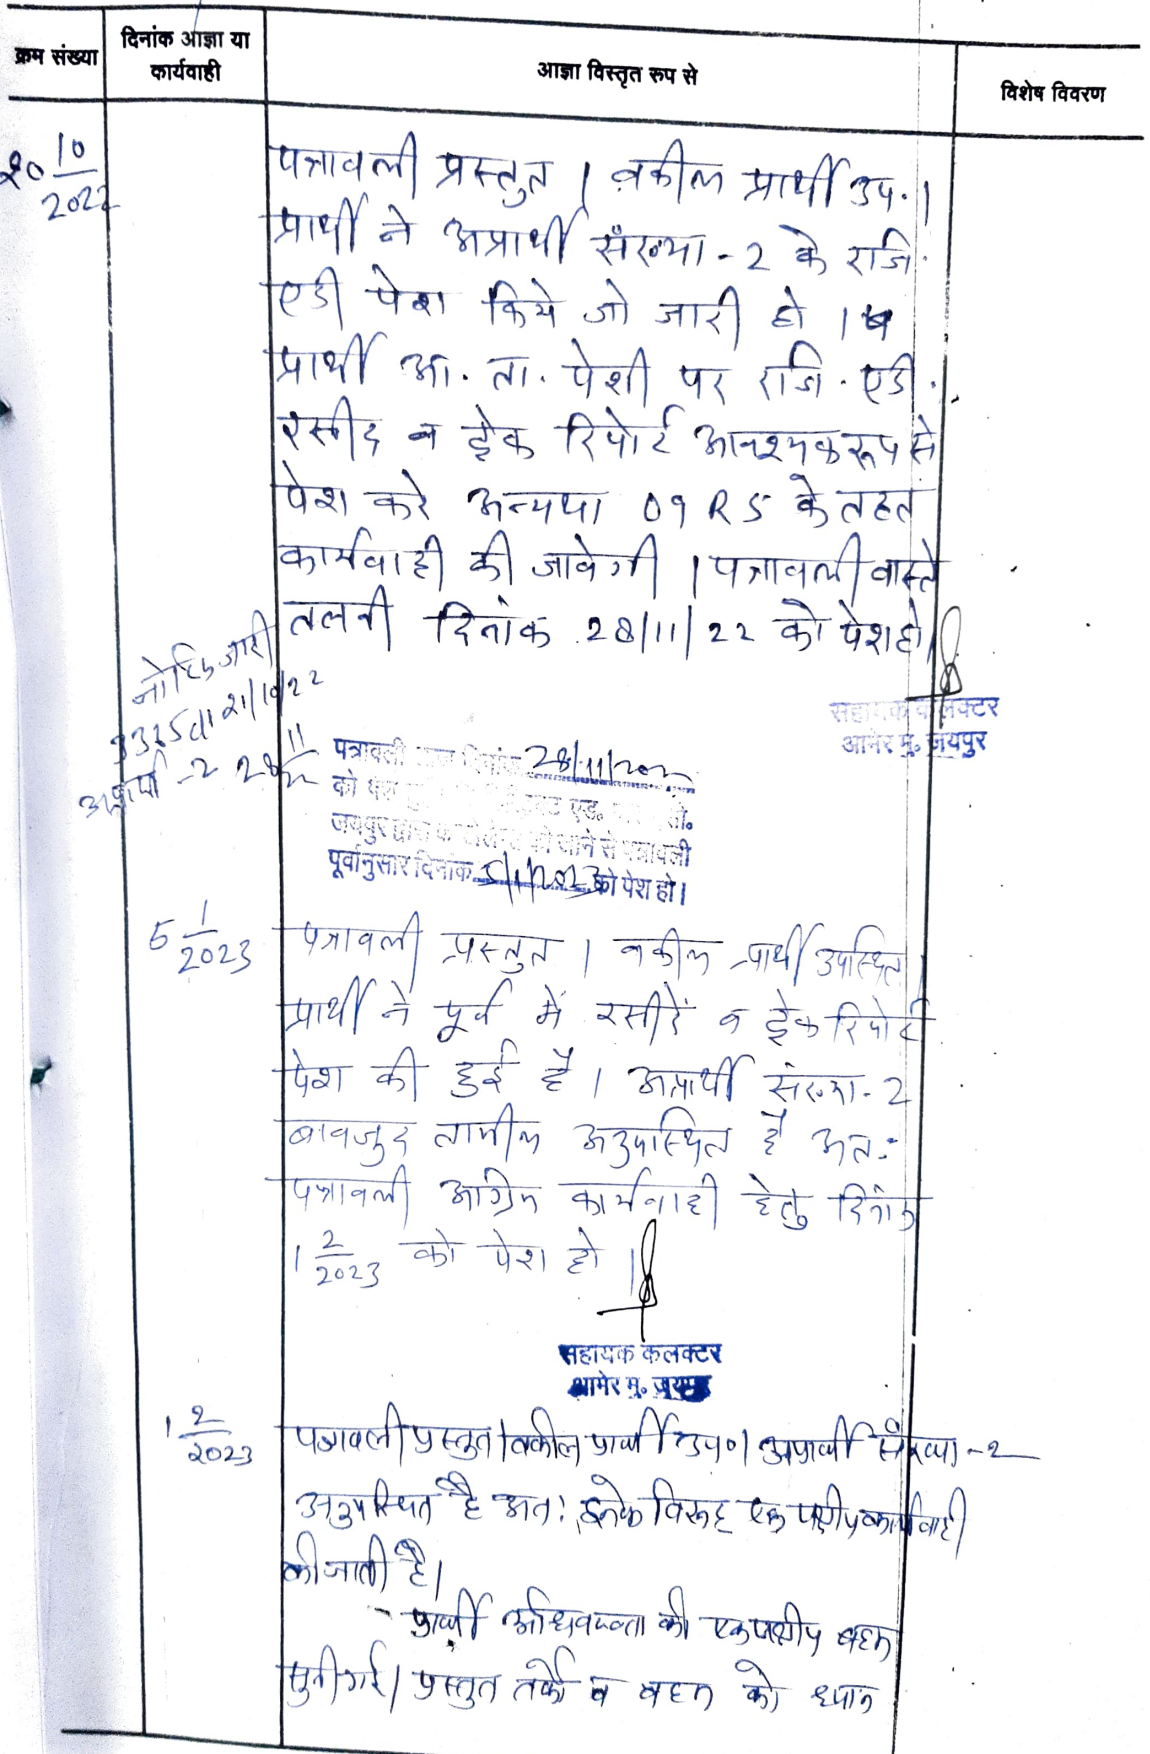 क्रम संख्या
दिनांक आज्ञा या
कार्यवाही
आज्ञा विस्तृत रुप से
विशेष विवरण
20 10/2022
पत्रावली प्रस्तुत । वकील प्रार्थी उप. ।
प्रार्थी ने अप्रार्थी संख्या - 2 के रजि.
एडी पेश किये जो जारी हो ।
प्रार्थी आ. ता. पेशी पर रजि. एडी.
रसीद व ट्रेक रिपोर्ट आवश्यक रूप से
पेश करे अन्यथा 09 R 5 के तहत
कार्यवाही की जावेगी । पत्रावली वास्ते
तलबी दिनांक 28/11/22 को पेश हो ।
नोटिस जारी
21/10/22
अप्रार्थी - 2 28 11/22
सहायक कलक्टर
आमेर मु. जयपुर
पत्रावली आज दिनांक 28/11/2022
को पेश एड.
जयपुर द्वारा की जाने से पत्रावली
पूर्वानुसार दिनांक 5/1/2023 को पेश हो ।
5 1/2023
पत्रावली प्रस्तुत । वकील प्रार्थी उपस्थित ।
प्रार्थी ने पूर्व में रसीदें व ट्रेक रिपोर्ट
पेश की हुई है । अप्रार्थी संख्या - 2
बावजुद तामील अनुपस्थित है अतः
पत्रावली अग्रिम कार्यवाही हेतु दिनांक
1 2/2023 को पेश हो ।
सहायक कलक्टर
आमेर मु. जयपुर
1 2/2023
पत्रावली प्रस्तुत । वकील प्रार्थी उप० । अप्रार्थी संख्या - 2
अनुपस्थित है अतः इनके विरूद्ध एक पक्षीय कार्यवाही
की जाती है ।
प्रार्थी अधिवक्ता की एकपक्षीय बहस
सुनी गई । प्रस्तुत तर्को व बहस को ध्यान